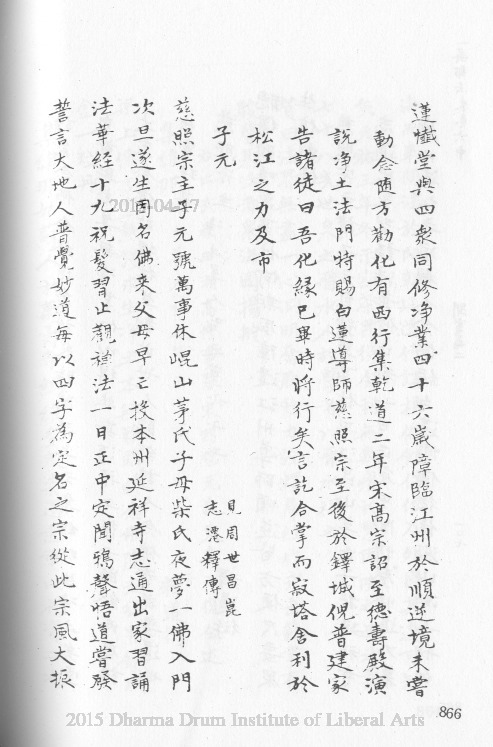 蓮懺堂與四衆同修净業四十六歲障臨江州於順逆境未嘗
動念随方勸化有西行集乾道二年宋髙宗詔至德壽殿演
說净土法門特賜白蓮導師慈照宗主後於鐸城倪普建家
告諸徒曰吾化縁已畢時將行矣言訖合掌而寂塔舍利於
松江之力及市
子元
見周世昌崑
志濹釋傳
慈照宗主子元號萬事休崐山茅氏子母柴氏夜夢一佛入門
次旦遂生因名佛來父母早亡投本州延祥寺志通出家習誦
法華經十九祝髮習止觀禅法一日正中定聞鴉聲悟道嘗發
誓言大地人普覺妙道每以四字為定名之宗從此宗風大振
866
2015-04-17
2015 Dharma Drum Institute of Liberal Arts